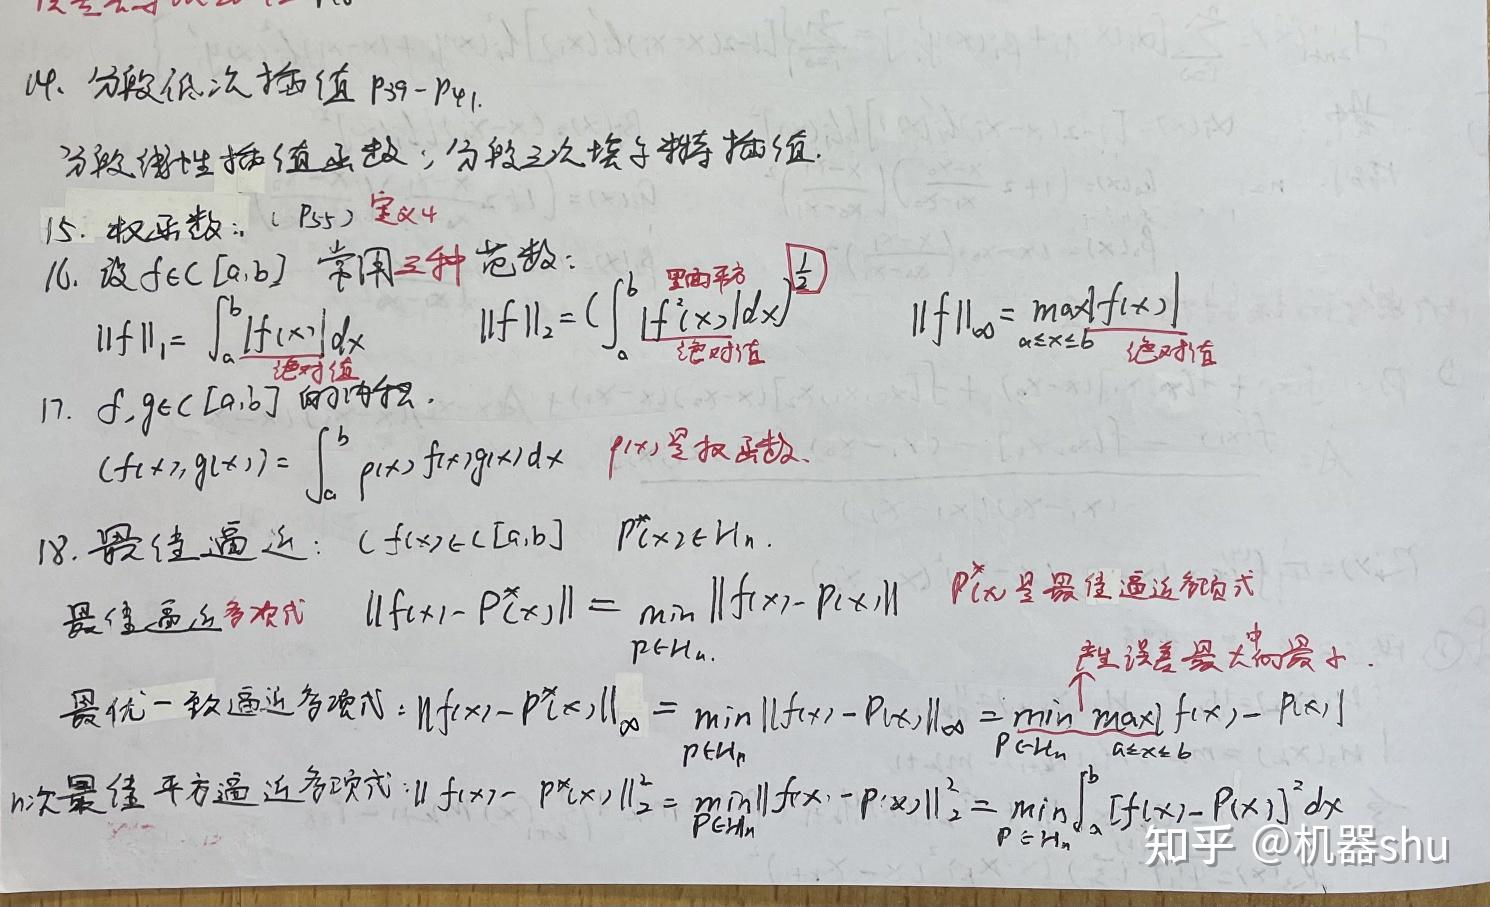 14. 分段低次插值 P39-P41.
分段线性插值函数，分段三次埃尔米特插值.
15. 权函数：（P55）定义4
16. 设f∈C[a,b] 常用三种范数：
里面平方
||f||₁=∫ₐᵇ|f(x)|dx ||f||₂=(∫ₐᵇ|f²(x)|dx)^½ ||f||∞=max a≤x≤b |f(x)|
绝对值 绝对值 绝对值
17. f,g∈C[a,b]的内积.
(f(x),g(x))=∫ₐᵇ ρ(x)f(x)g(x)dx ρ(x)是权函数.
18. 最佳逼近：(f(x)∈C[a,b] P*(x)∈Hₙ.
最佳逼近多项式 ||f(x)-P*(x)||=min P∈Hₙ. ||f(x)-P(x)|| P*(x)是最佳逼近多项式
产生误差最大中的最小.
最优一致逼近多项式：||f(x)-P*(x)||∞=min P∈Hₙ ||f(x)-P(x)||∞=min P∈Hₙ max a≤x≤b |f(x)-P(x)|
n次最佳平方逼近多项式：||f(x)-P*(x)||₂²=min P∈Hₙ ||f(x)-P(x)||₂²=min P∈Hₙ ∫ₐᵇ[f(x)-P(x)]²dx
知乎 @机器shu